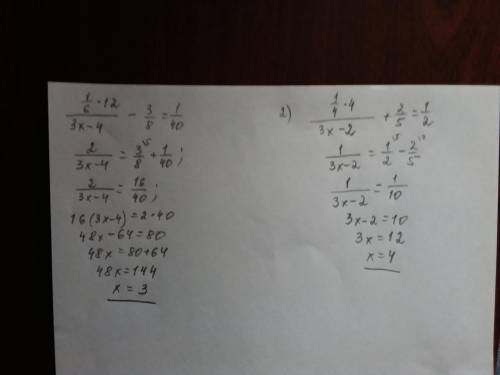 (1/6 · 12)/(3x-4) - 3/8 = 1/40
2/(3x-4) = 3/8 ⁵ + 1/40 ;
2/(3x-4) = 16/40 ;
16(3x-4) = 2·40
48x - 64 = 80
48x = 80+64
48x = 144
x = 3
2) (1/4 · 4)/(3x-2) + 2/5 = 1/2
1/(3x-2) = 1/2 ⁵ - 2/5
1/(3x-2) = 1/10
3x-2 = 10
3x = 12
x = 4